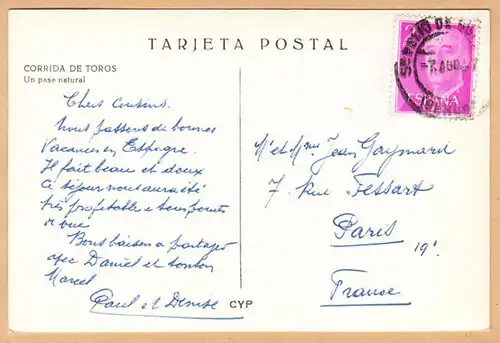 TARJETA POSTAL
CORRIDA DE TOROS
Un pase natural
Chers cousins.
Nous passons de bonnes
Vacances en Espagne.
Il fait beau et doux
Ce séjour nous aura été
très profitable a tous points
de vue
Bons baisers a partager
avec Daniel et tonton
Marcel
Paul et Denise
CYP
ESPAÑA
M et Mme Jean Gaymard
7. Rue Fessart
Paris
19e
France